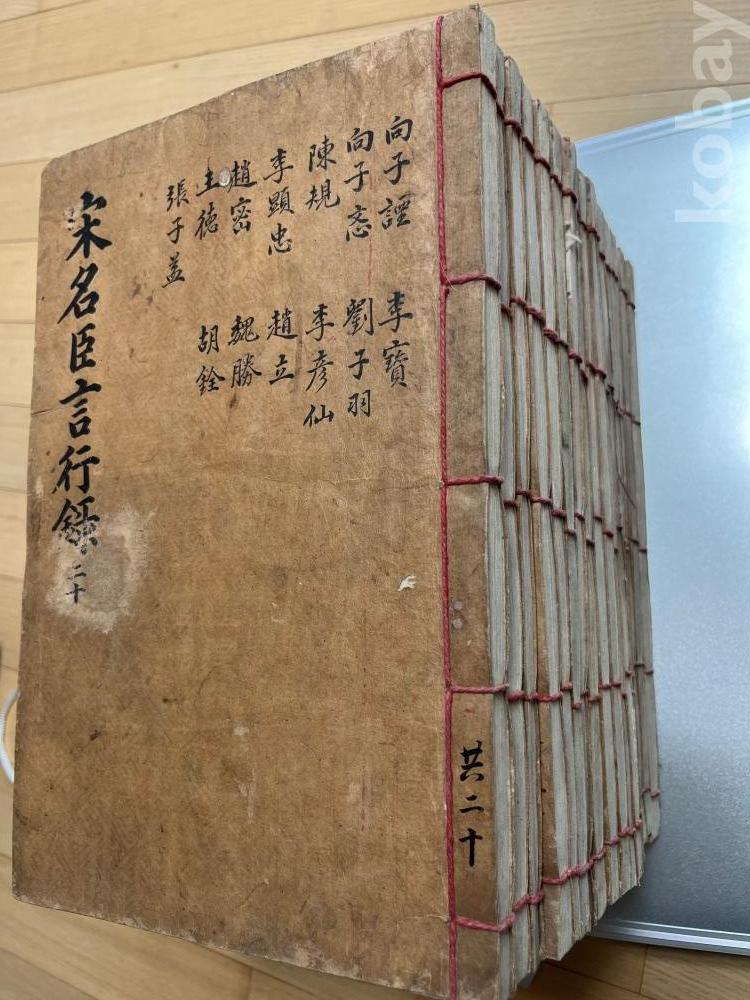 向子諲 李寶
向子忞 劉子羽
陳規 李彦仙
李顯忠 趙立
趙密 魏勝
王德 胡銓
張子盖
宋名臣言行錄 二十
共二十
kobay